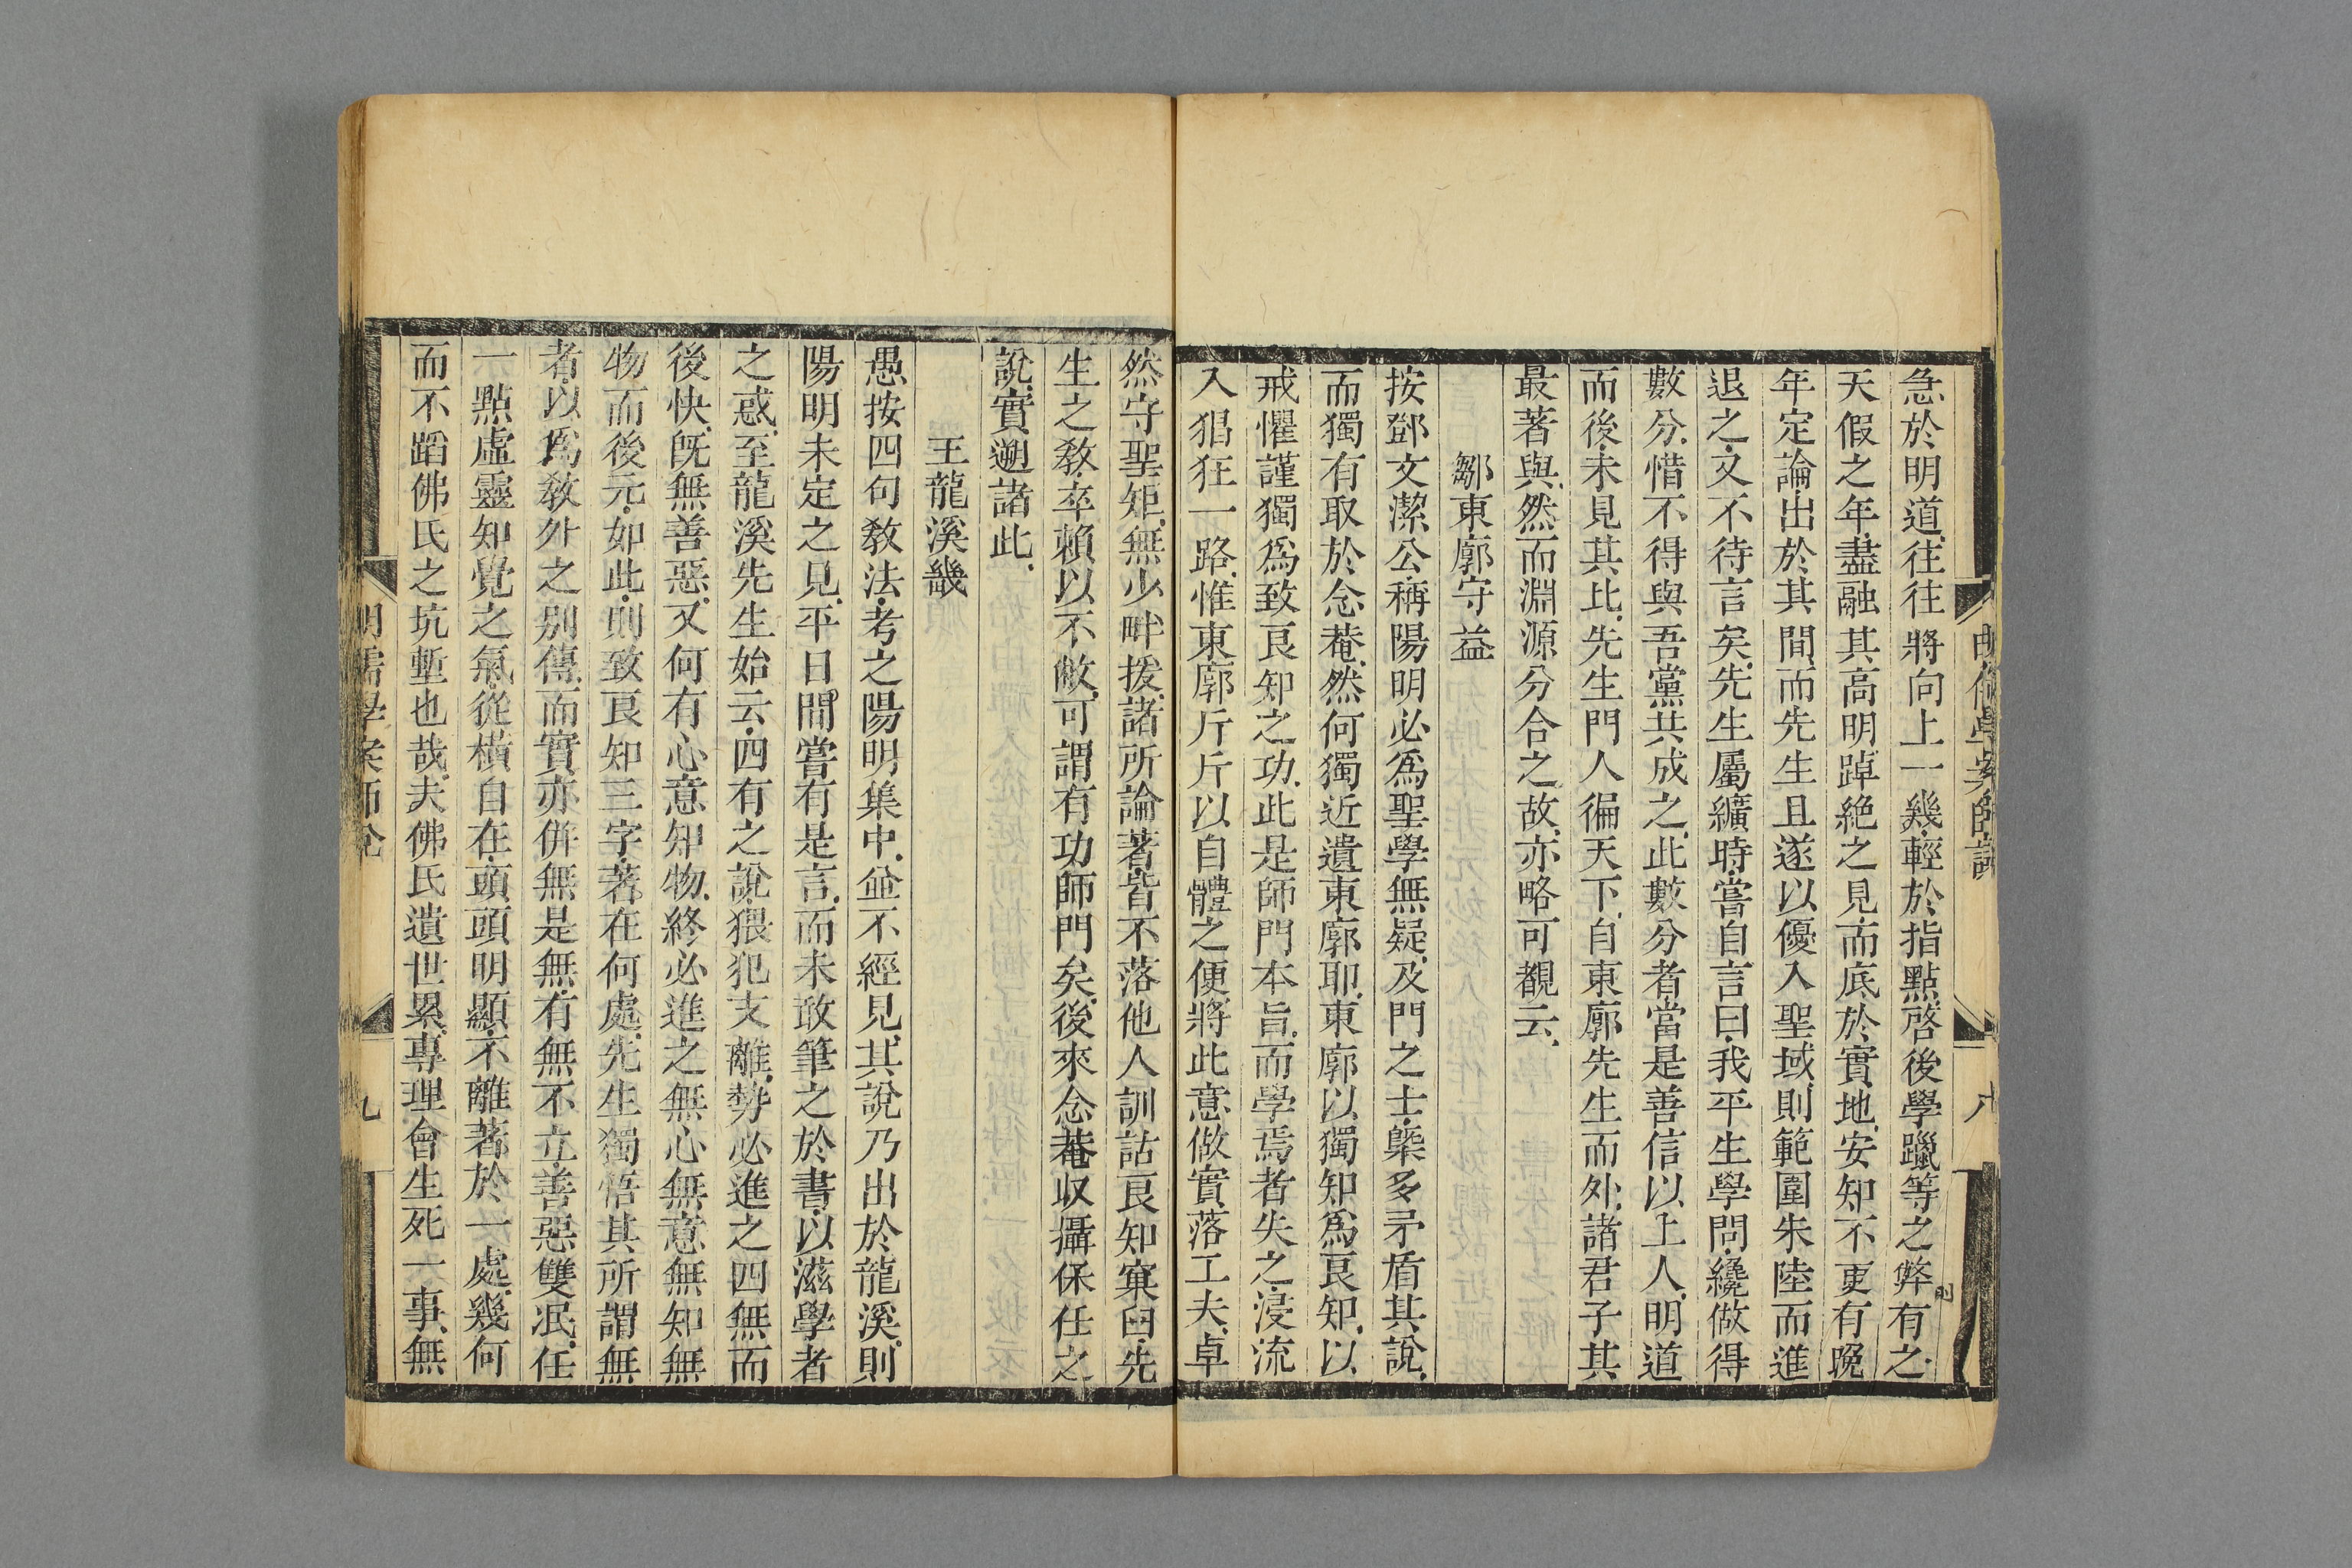 急於明道往往將向上一幾輕於指點啓後學躐等之弊有之
天假之年盡融其高明踔絶之見而底於實地安知不更有晩
年定論出於其間而先生且遂以優入聖域則範圍朱陸而進
退之又不待言矣先生屬纊時嘗自言曰我平生學問纔做得
數分惜不得與吾黨共成之此數分者當是善信以上人明道
而後未見其比先生門人徧天下自東廓先生而外諸君子其
最著與然而淵源分合之故亦略可覩云
鄒東廓守益
按鄧文潔公稱陽明必爲聖學無疑及門之士槩多矛盾其說
而獨有取於念菴然何獨近遺東廓耶東廓以獨知爲良知以
戒懼謹獨爲致良知之功此是師門本旨而學焉者失之浸流
入猖狂一路惟東廓斤斤以自體之便將此意做實落工夫卓
然守聖矩無少畔援諸所論著皆不落他人訓詁良知窠臼先
生之敎卒賴以不敝可謂有功師門矣後來念菴收攝保任之
說實遡諸此
王龍溪畿
愚按四句敎法考之陽明集中並不經見其說乃出於龍溪則
陽明未定之見平日間嘗有是言而未敢筆之於書以滋學者
之惑至龍溪先生始云四有之說猥犯支離勢必進之四無而
後快旣無善惡又何有心意知物終必進之無心無意無知無
物而後元如此則致良知三字著在何處先生獨悟其所謂無
者以爲敎外之別傳而實亦併無是無有無不立善惡雙泯任
一點虛靈知覺之氣從橫自在頭頭明顯不離著於一處幾何
而不蹈佛氏之坑塹也哉夫佛氏遺世累專理會生死一事無
明儒學案師說
九